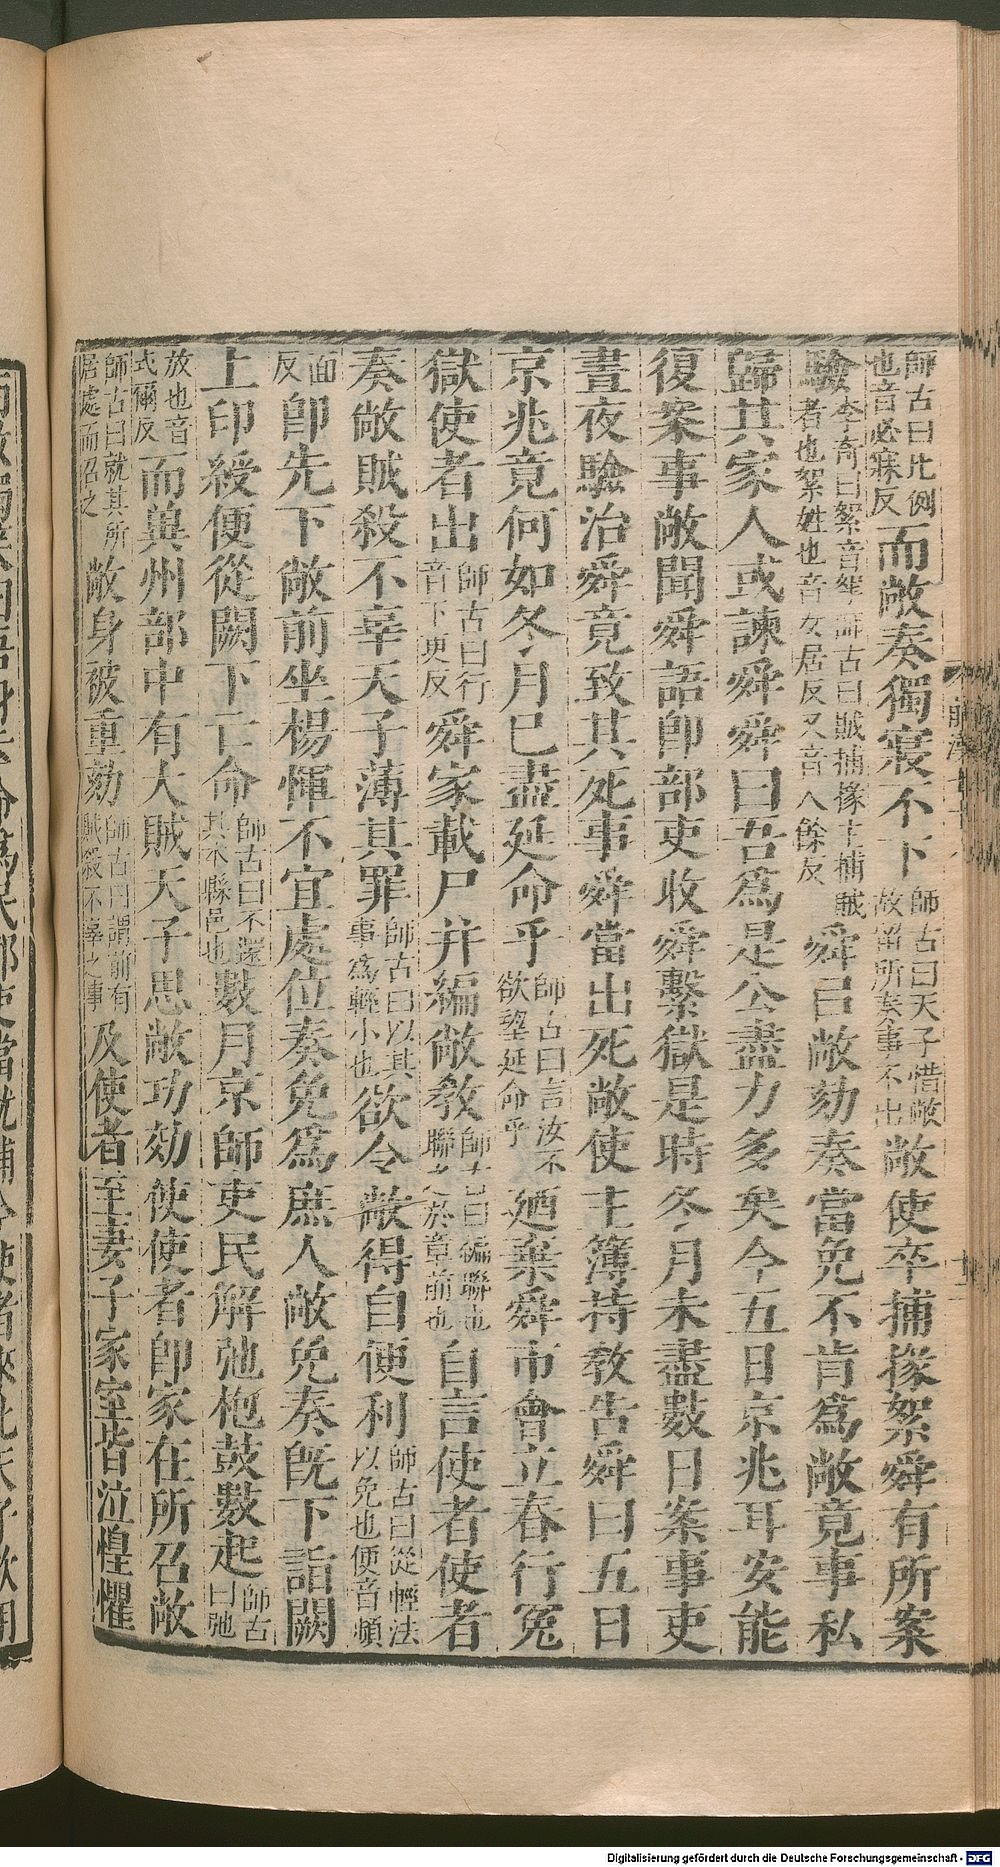 師古曰比例也音必寐反而敞奏獨寢不下師古曰天子惜敞故留所奏事不出敞使卒捕掾絮舜有所案
驗李奇曰絮音挐師古曰賊捕掾主捕賊者也絮姓也音女居反又音人餘反舜曰敞劾奏當免不肯爲敞竟事私
歸其家人或諫舜舜曰吾爲是公盡力多矣今五日京兆耳安能
復案事敞聞舜語卽部吏收舜繫獄是時冬月未盡數日案事吏
晝夜驗治舜竟致其死事舜當出死敞使主簿持敎告舜曰五日
京兆竟何如冬月已盡延命乎師古曰言汝不欲望延命乎廼棄舜市會立春行冤
獄使者出師古曰行音下更反舜家載尸并編敞敎師古曰編聯也聯之於章前也自言使者使者
奏敞賊殺不辜天子薄其罪師古曰以其事爲輕小也欲令敞得自便利師古曰從輕法以免也便音頻
面反卽先下敞前坐楊惲不宜處位奏免爲庶人敞免奏旣下詣闕
上印綬便從闕下亡命師古曰不還其本縣邑也數月京師吏民解弛枹鼓數起師古曰弛
放也音式爾反而冀州部中有大賊天子思敞功效使使者卽家在所召敞
師古曰就其所居處而召之敞身被重劾師古曰謂前有賊殺不辜之事及使者至妻子家室皆泣惶懼
Digitalisierung gefördert durch die Deutsche Forschungsgemeinschaft - DFG